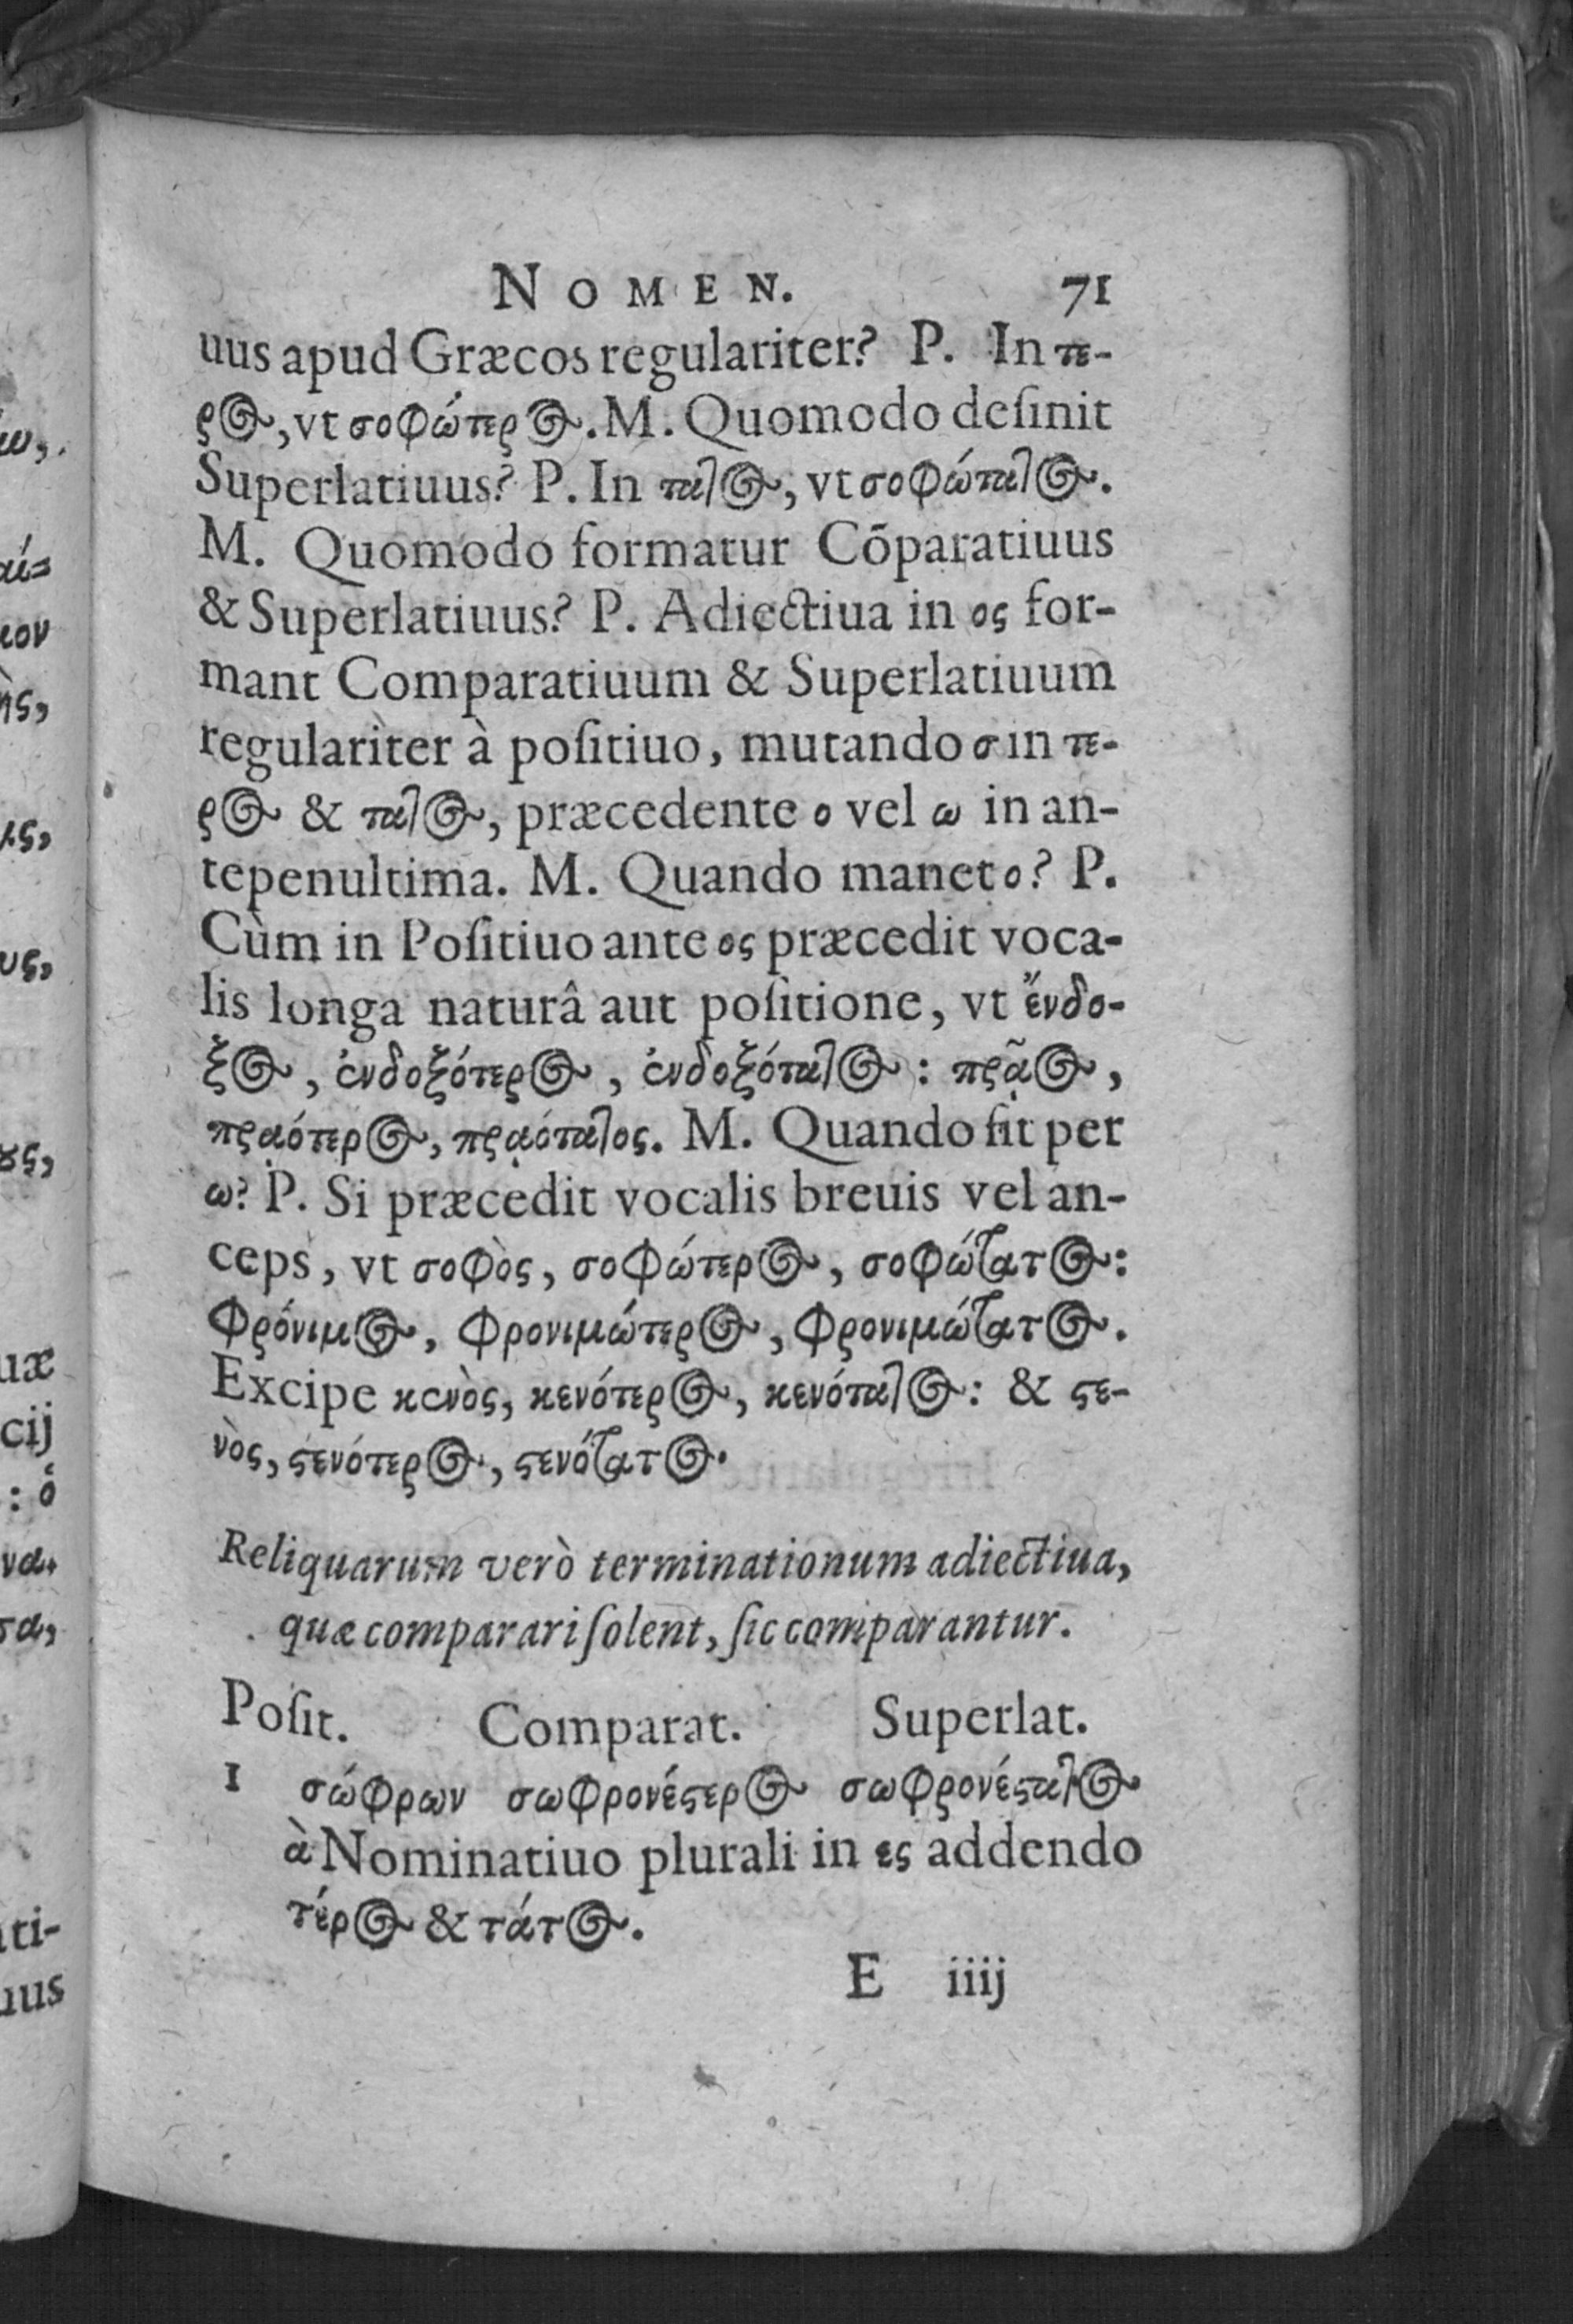 NOMEN. 71
uus apud Græcos regulariter? P. In τε-
ρος, vt σοφώτερος. M. Quomodo desinit
Superlatiuus? P. In τατος, vt σοφώτατος.
M. Quomodo formatur Cōparatiuus
& Superlatiuus? P. Adiectiua in ος for-
mant Comparatiuum & Superlatiuum
regulariter à positiuo, mutando σ in τε-
ρος & τατος, præcedente ο vel ω in an-
tepenultima. M. Quando manet ο? P.
Cùm in Positiuo ante ος præcedit voca-
lis longa naturâ aut positione, vt ἔνδο-
ξος, ἐνδοξότερος, ἐνδοξότατος: πρᾷος,
πραότερος, πρᾳότατος. M. Quando fit per
ω? P. Si præcedit vocalis breuis vel an-
ceps, vt σοφὸς, σοφώτερος, σοφώτατος:
φρόνιμος, φρονιμώτερος, φρονιμώτατος.
Excipe κενὸς, κενότερος, κενότατος: & ϛε-
νὸς, ϛενότερος, ϛενότατος.
Reliquarum verò terminationum adiectiua,
quæ comparari solent, sic comparantur.
Posit. Comparat. Superlat.
1 σώφρων σωφρονέϛερος σωφρονέϛατος
à Nominatiuo plurali in ες addendo
τέρος & τάτος.
E iiij